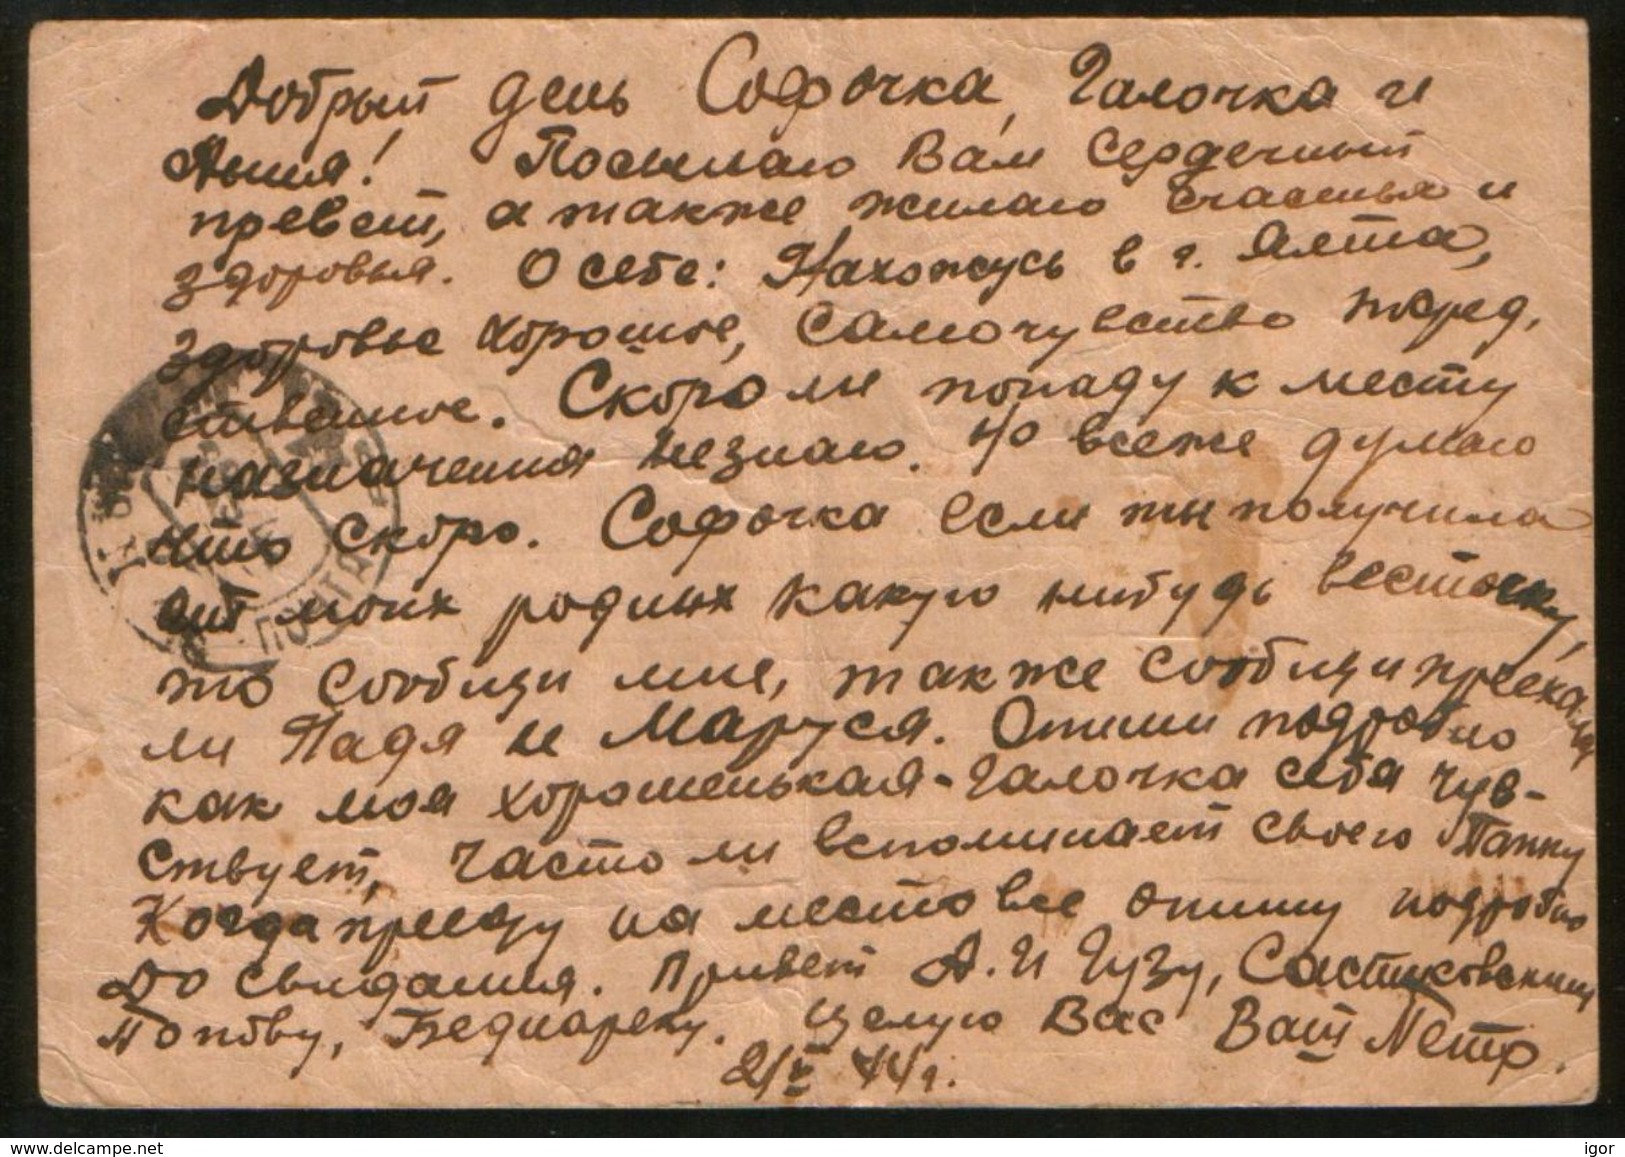 Добрый день Софочка, Галочка и
Ання! Посылаю Вам Сердечный
превет, а также жилаю счастья и
здоровья. О себе: Нахожусь в г. Ялта,
Здоровье хорошое, самочувство посред,
ственное. Скоро ли попаду к месту
назначения незнаю. Но всеже думаю
что скоро. Софочка если ты получила
от моих родных какую нибудь весточку,
то сообщи мне, также сообщи преехали
ли Надя и Маруся. Опиши подробно
как моя хорошенькая-Галочка себя чув-
ствует, часто ли вспоминает своего Папку
Когда прееду на место все опишу подробно
До свидания. Привет А. И Гузу,
Попову, Беднареку. целую Вас Ваш Петр.
2/V 44 г.
ПОЧТА
igor